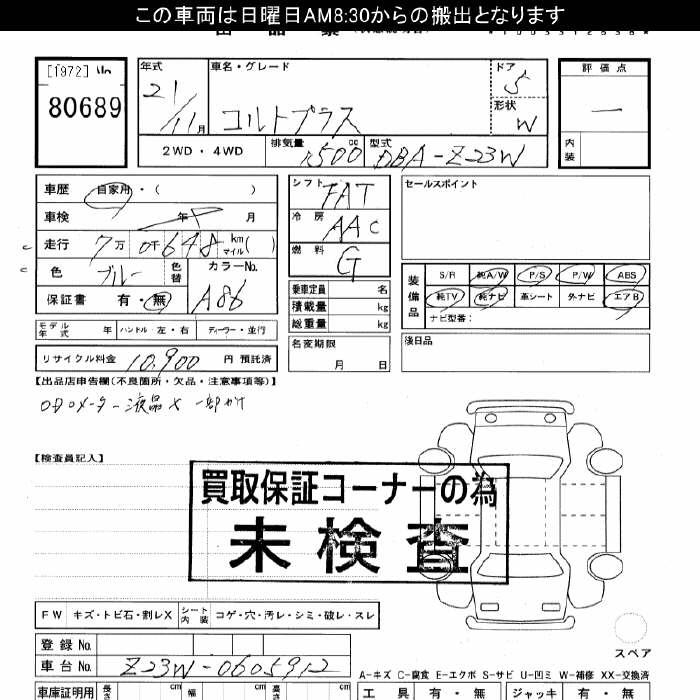 この車両は日曜日AM8:30からの搬出となります
[1972] 山
80689
年式
21
11月
車名・グレード
コルトプラス
ドア
5
形状
W
2WD・4WD
排気量
1500
cc
型式
DBA-Z23W
評価点
一
内装
車歴 自家用・( )
車検 年 月
走行 7万 0千 648 km マイル( )
色 ブルー 色替
カラーNo.
A86
保証書 有・無
モデル年式 年
ハンドル 左・右
ディーラー・並行
リサイクル料金 10,900 円 預託済
シフト FAT
冷房 AAC
燃料 G
乗車定員 名
積載量 kg
総重量 kg
名変期限
月 日
セールスポイント
装備品
S/R 純A/W P/S P/W ABS
純TV 純ナビ 革シート 外ナビ エアB
ナビ型番:
後日品
【出品店申告欄(不良箇所・欠品・注意事項等)】
ODOメーター液晶× 一部かけ
【検査員記入】
買取保証コーナーの為
未検査
FW キズ・トビ石・割レX
シート内装 コゲ・穴・汚レ・シミ・破レ・スレ
登録No.
車台No. Z23W-0605912
スペア
A-キズ C-腐食 E-エクボ S-サビ U-凹ミ W-補修 XX-交換済
車庫証明用 長さ cm 幅 cm 高さ cm
工具 有・無
ジャッキ 有・無